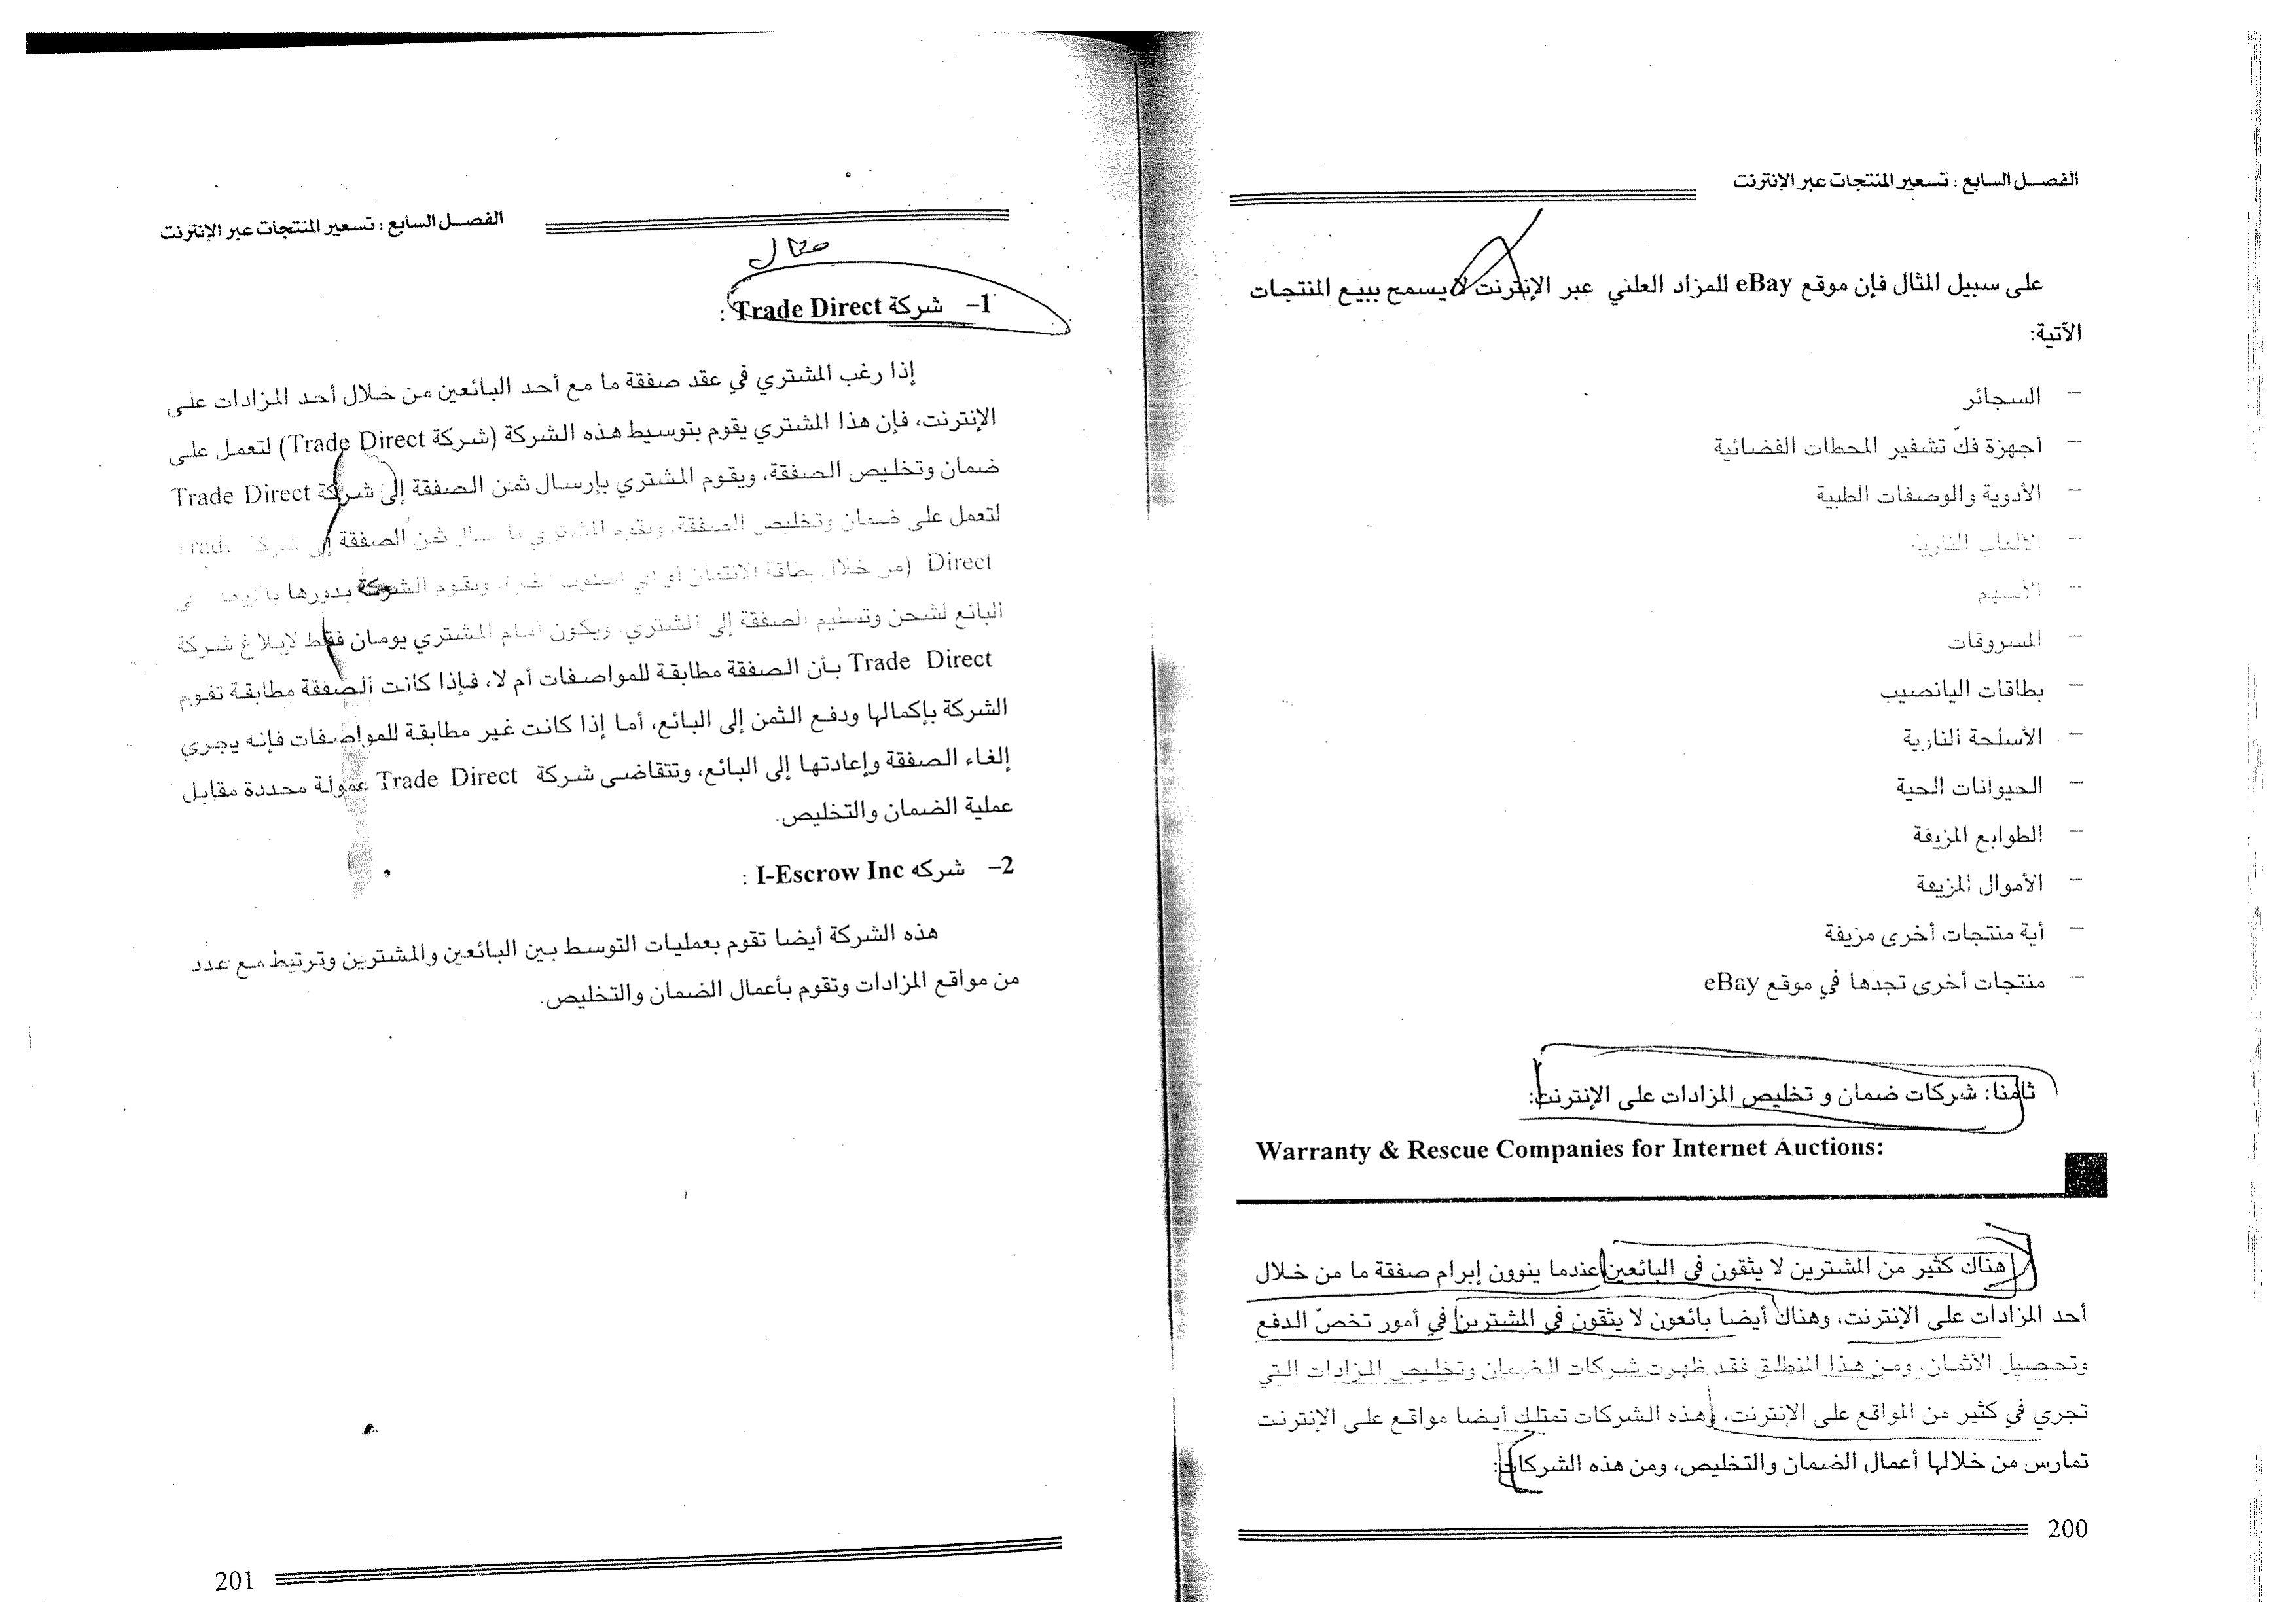 الفصل السابع : تسعير المنتجات عبر الإنترنت
على سبيل المثال فإن موقع eBay للمزاد العلني عبر الإنترنت لا يسمح ببيع المنتجات
الآتية:
– السجائر
– أجهزة فكّ تشفير المحطات الفضائية
– الأدوية والوصفات الطبية
– الألعاب النارية
– الأسهم
– المسروقات
– بطاقات اليانصيب
– الأسلحة النارية
– الحيوانات الحية
– الطوابع المزيفة
– الأموال المزيفة
– أية منتجات أخرى مزيفة
– منتجات أخرى تجدها في موقع eBay
ثامنا: شركات ضمان و تخليص المزادات على الإنترنت:
Warranty & Rescue Companies for Internet Auctions:
هناك كثير من المشترين لا يثقون في البائعين عندما ينوون إبرام صفقة ما من خلال
أحد المزادات على الإنترنت، وهناك أيضا بائعون لا يثقون في المشترين في أمور تخصّ الدفع
وتحصيل الأثمان، ومن هذا المنطلق فقد ظهرت شركات الضمان وتخليص المزادات التي
تجري في كثير من المواقع على الإنترنت، وهذه الشركات تمتلك أيضا مواقع على الإنترنت
تمارس من خلالها أعمال الضمان والتخليص، ومن هذه الشركات:
200
الفصل السابع : تسعير المنتجات عبر الإنترنت
مثال
1– شركة Trade Direct :
إذا رغب المشتري في عقد صفقة ما مع أحد البائعين من خلال أحد المزادات على
الإنترنت، فإن هذا المشتري يقوم بتوسيط هذه الشركة (شركة Trade Direct) لتعمل على
ضمان وتخليص الصفقة، ويقوم المشتري بإرسال ثمن الصفقة إلى شركة Trade Direct
لتعمل على ضمان وتخليص الصفقة، ويقوم المشتري بإرسال ثمن الصفقة إلى شركة Trade
Direct (من خلال بطاقة الائتمان أو أي أسلوب آخر)، ويقوم الشركة بدورها
البائع لشحن وتسليم الصفقة إلى المشتري، ويكون أمام المشتري يومان فقط لإبلاغ شركة
Trade Direct بأن الصفقة مطابقة للمواصفات أم لا، فإذا كانت الصفقة مطابقة تقوم
الشركة بإكمالها ودفع الثمن إلى البائع، أما إذا كانت غير مطابقة للمواصفات فإنه يجري
إلغاء الصفقة وإعادتها إلى البائع، وتتقاضى شركة Trade Direct عمولة محددة مقابل
عملية الضمان والتخليص.
2– شركه I-Escrow Inc :
هذه الشركة أيضا تقوم بعمليات التوسط بين البائعين والمشترين وترتبط مع عدد
من مواقع المزادات وتقوم بأعمال الضمان والتخليص.
201